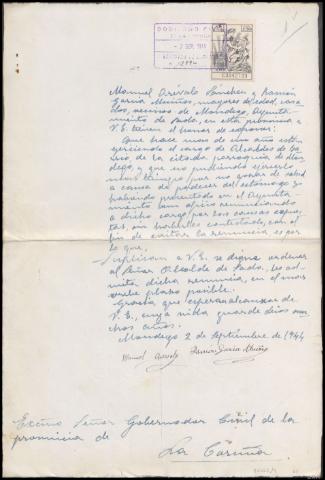 GOBIERNO C
2 SEP. 1944
Manuel Arévalo Sánchez y Ramón
García Muiños, mayores de edad, casa-
dos, vecinos de Mondego, Ayunta-
miento de Sada, en esta provincia a
V.E. tienen el honor de exponer:
Que hace mas de un año están
ejerciendo el cargo de Alcaldes de ba-
rrio de la citada parroquia de Mon-
dego, y que no pudiendo ejercerlo
mas tiempo por no gozar de salud
a causa de padecer del estómago y
habiendo presentado en el Ayunta-
miento un oficio renunciando
a dicho cargo por las causas expues-
tas, sin haberles contestado, con el
fin de evitar la renuncia es por
lo que,
Suplican a V.E. se digne ordenar
al Señor Alcalde de Sada, les ad-
mita dicha renuncia, en el mas
breve plazo posible.
Gracia que esperan alcanzar de
V.E., cuya vida guarde Dios mu-
chos años.
Mondego 2 de Septiembre de 1944
Manuel Arevalo Ramon Garcia Muiño
Excmo Señor Gobernador Civil de la
provincia de
La Coruña